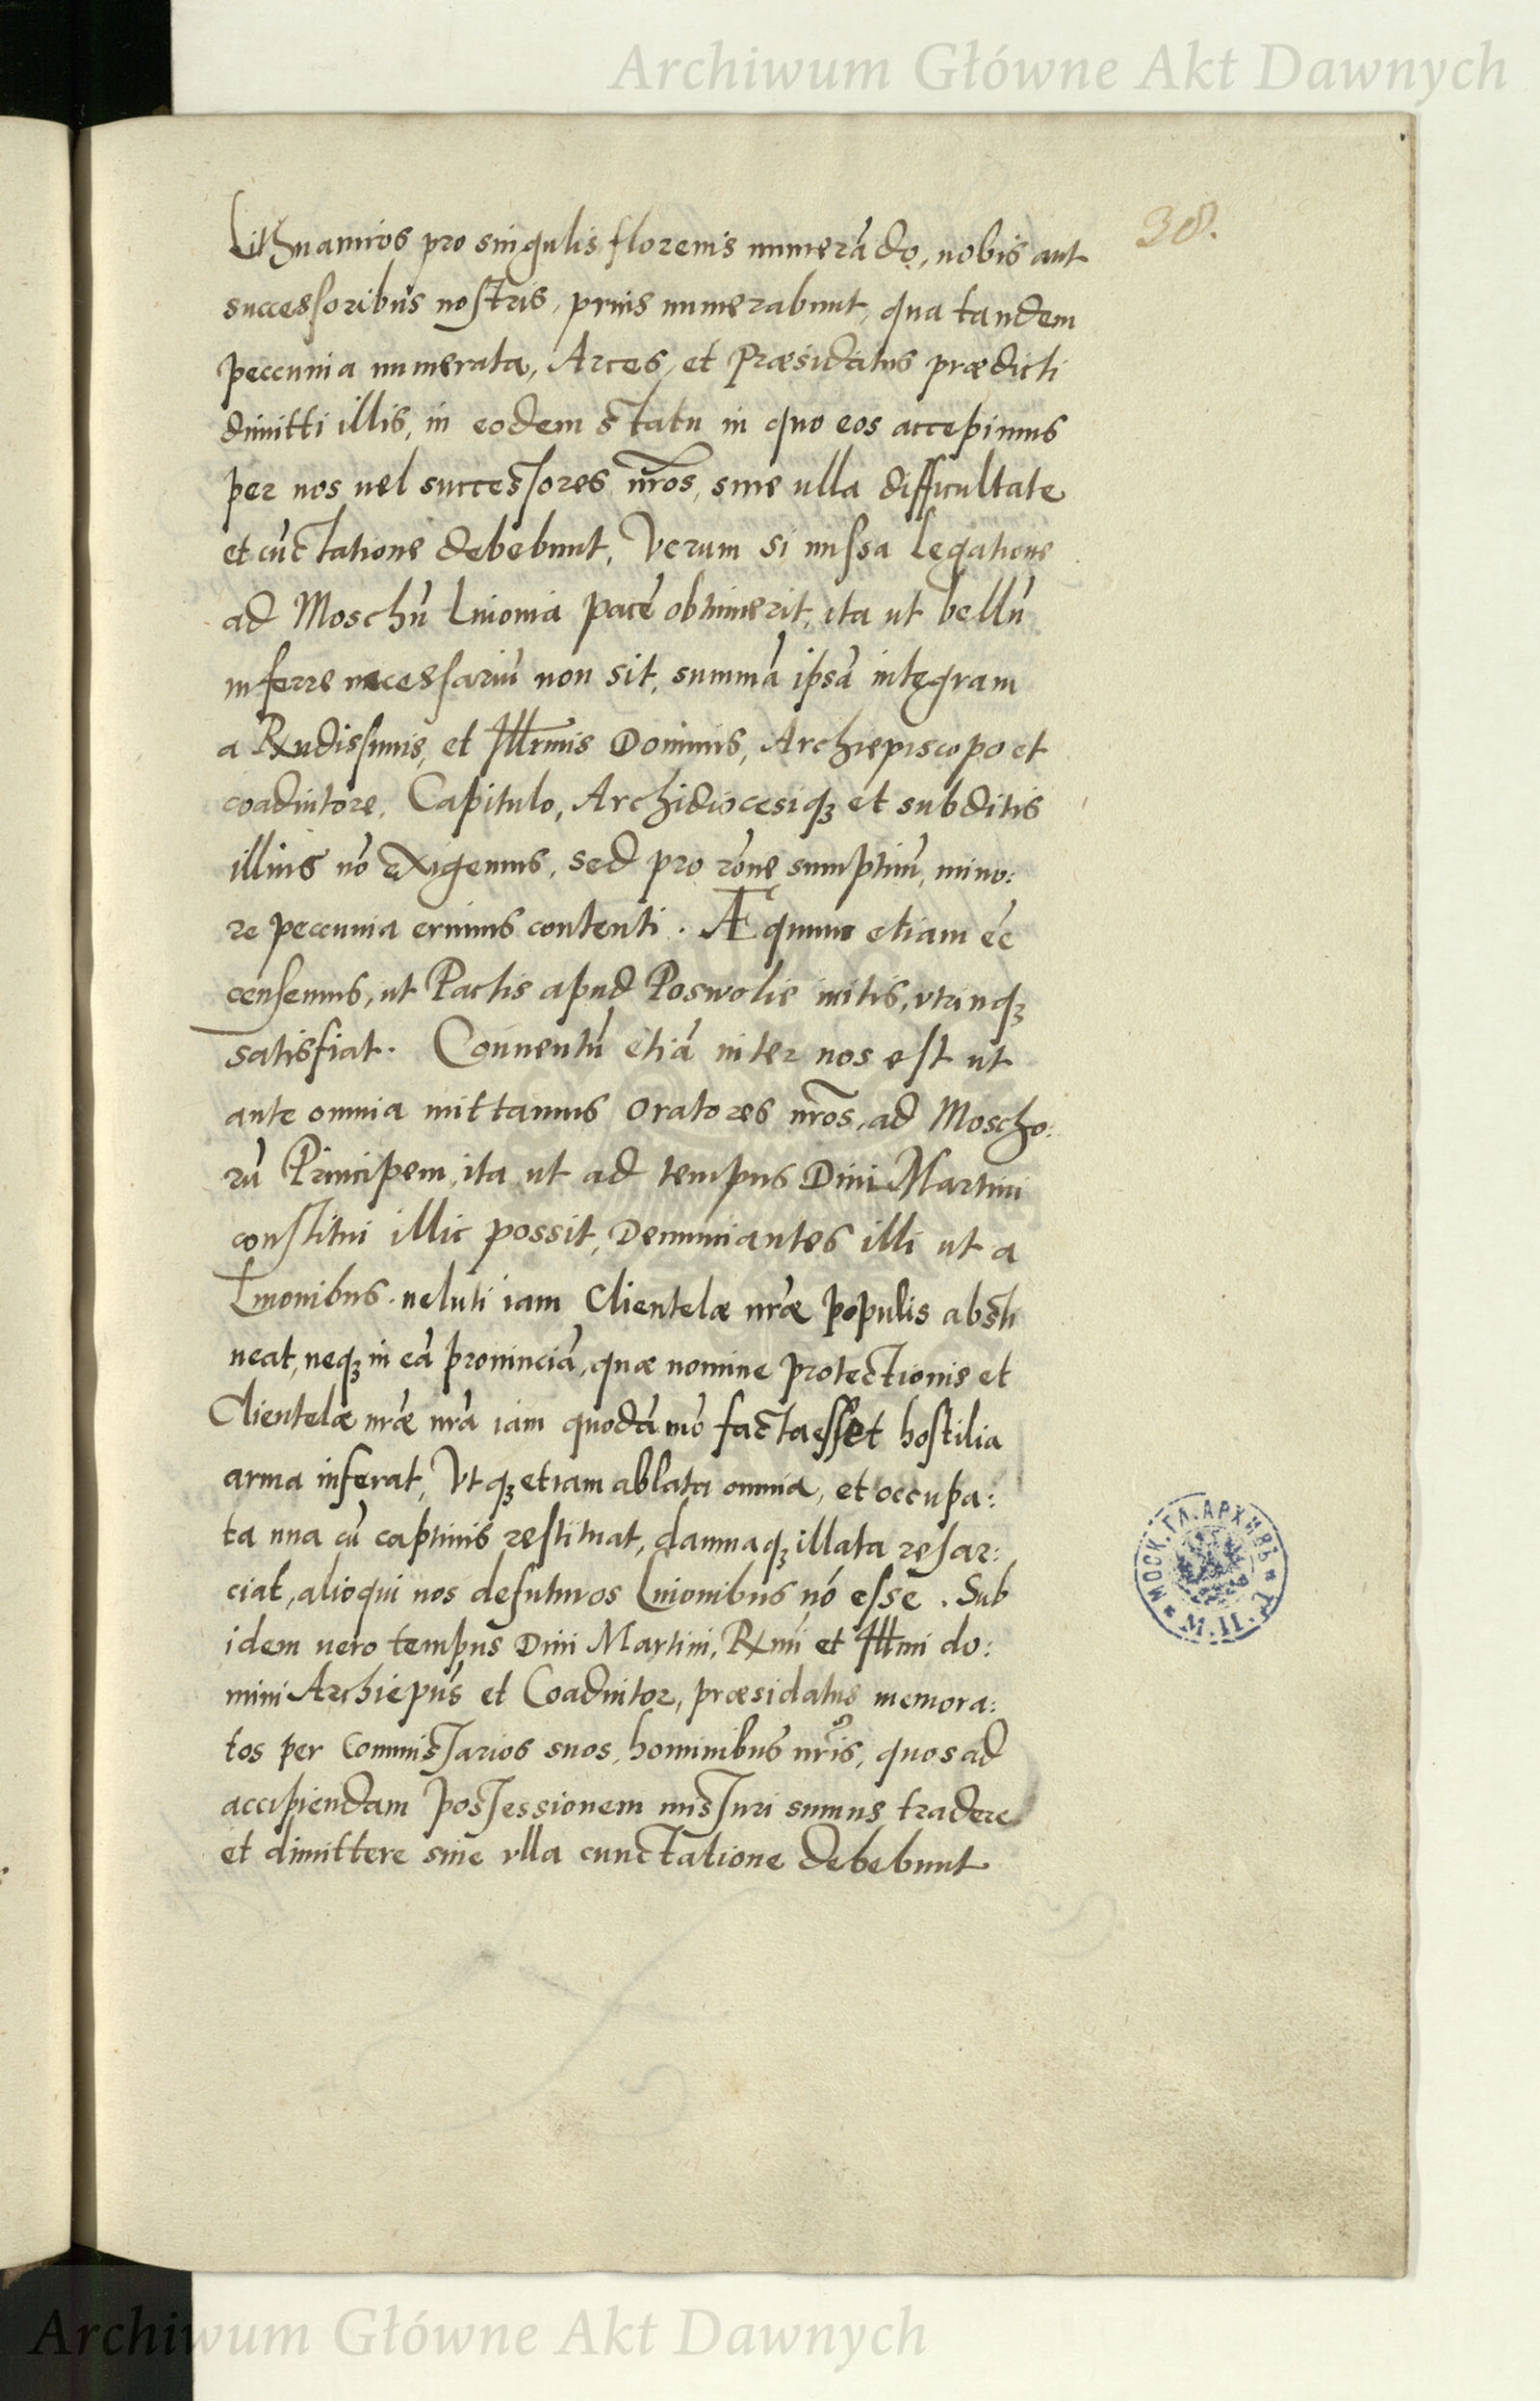 Archiwum Główne Akt Dawnych
38.
Lithuanicos pro singulis florenis numerādo, nobis aut
successoribus nostris, prius numerabunt, qua tandem
peccunia numerata, Arces, et Præsidatus prædicti
dimitti illis, in eodem statu in quo eos accepimus
per nos uel successores nr̄os, sine ulla difficultate
et cūctatione debebunt, Verum si missa legatione
ad Moschū Liuonia pacē obtinuerit, ita ut bellū
inferre necessariū non sit, summā ipsā integram
a Rx̄ndissimis, et Illr̄mis Dominis, Archiepiscopo et
coadiutore, Capitulo, Archidiocesiqꝫ et subditis
illius nō exigemus, sed pro rōne sumptuū, mino:
re peccunia erimus contenti. Æquum etiam eē
censemus, ut Pactis apud Poswolie initis, utrinqꝫ
satisfiat. Conuentū etiā inter nos est ut
ante omnia mittamus Oratores nr̄os, ad Moscho:
rū Principem, ita ut ad tempus Diui Martini
constitui illic possit, Denuntiantes illi ut a
Liuonibus. ueluti iam Clientelæ nr̄æ populis absti
neat, neqꝫ in eā prouinciā, quæ nomine protectionis et
Clientelæ nr̄æ nr̄a iam quodāmō facta esset hostilia
arma inferat, Vtqꝫ etiam ablata omnia, et occupa:
ta una cū captiuis restituat, damnaqꝫ illata resar:
ciat, alioqui nos defuturos Liuonibus nō esse. Sub
idem uero tempus Diui Martini, Rx̄mi et Illmi do:
mini Archiepūs et Coadiutor, præsidatus memora:
tos per Commissarios suos, hominibus nr̄is, quos ad
accipiendam possessionem missuri sumus tradere
et dimittere sine ulla cunctatione debebunt
МОСК. ГЛ. АРХИВЪ
М. И. Д.
Archiwum Główne Akt Dawnych